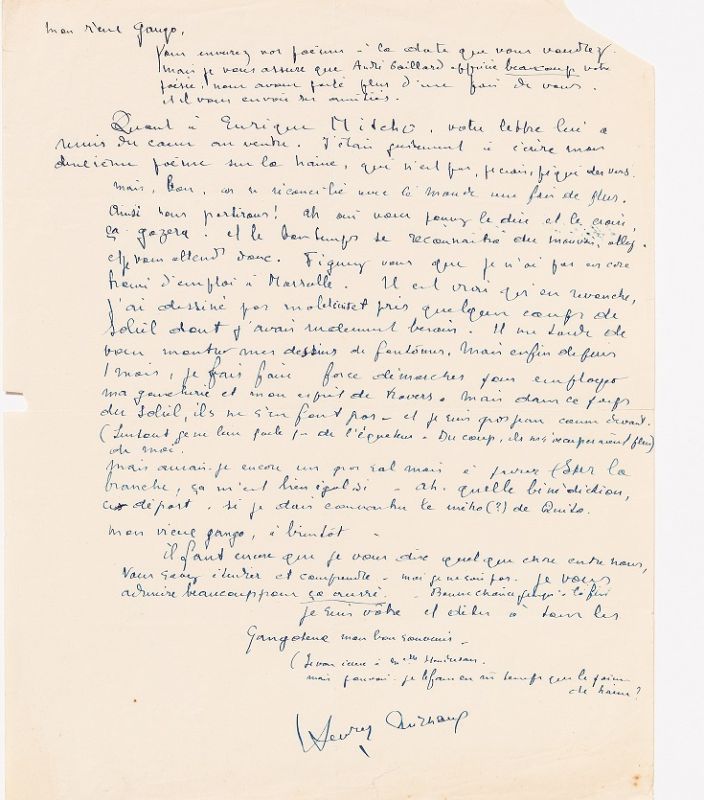 mon vieux Gango,
Vous enverrez vos poèmes à la date que vous voudrez
mais je vous assure que André Gaillard apprécie beaucoup votre
poésie, nous avons parlé plus d'une fois de vous.
et il vous envoie ses amitiés.
Quant à Enrique Mischó, votre lettre lui a
remis du coeur au ventre. J'étais justement à écrire mon
deuxième poème sur la haine, qui n'est pas, je crois, piqué des vers.
mais, bon, on se réconcilie avec le monde une fois de plus.
Ainsi nous partirons! ah oui vous pouvez le dire et le croire,
ça gazera. et le bon temps se reconnaîtra du mauvais, allez.
et je vous attends donc. Figurez vous que je n'ai pas encore
trouvé d'emploi à Marseille. Il est vrai qu'en revanche,
j'ai dessiné pas mal et pris quelques coups de
soleil dont j'avais rudement besoin. Il me tarde de
vous montrer mes dessins de fantômes. Mais enfin depuis
1 mois, je fais faire force démarches pour employer
ma gaucherie et mon esprit de travers. mais dans ce pays
du Soleil, ils ne s'en font pas - et je suis gros jean comme devant.
(Surtout je ne leur parle de l'équateur. Du coup, ils ne s'occuperaient plus)
de moi.
mais aurais-je encore un pas mais à (Sur la
branche, ça m'est bien égal si. Ah. quelle bénédiction,
ce départ. si je dois combattre le (?) de Quito.
mon vieux gango, à bientôt -
il faut encore que je vous dise quelque chose entre nous,
Vous savez étudier et comprendre - moi je ne sais pas. je vous
admire beaucoup pour ça aussi. - Bonne chance jusqu'à la fin
je suis vôtre et dites à tous les
Gangotena mon bon souvenir -
( à
mais pouvais-je le faire en même temps que le poème
de haine?
Henry Michaux